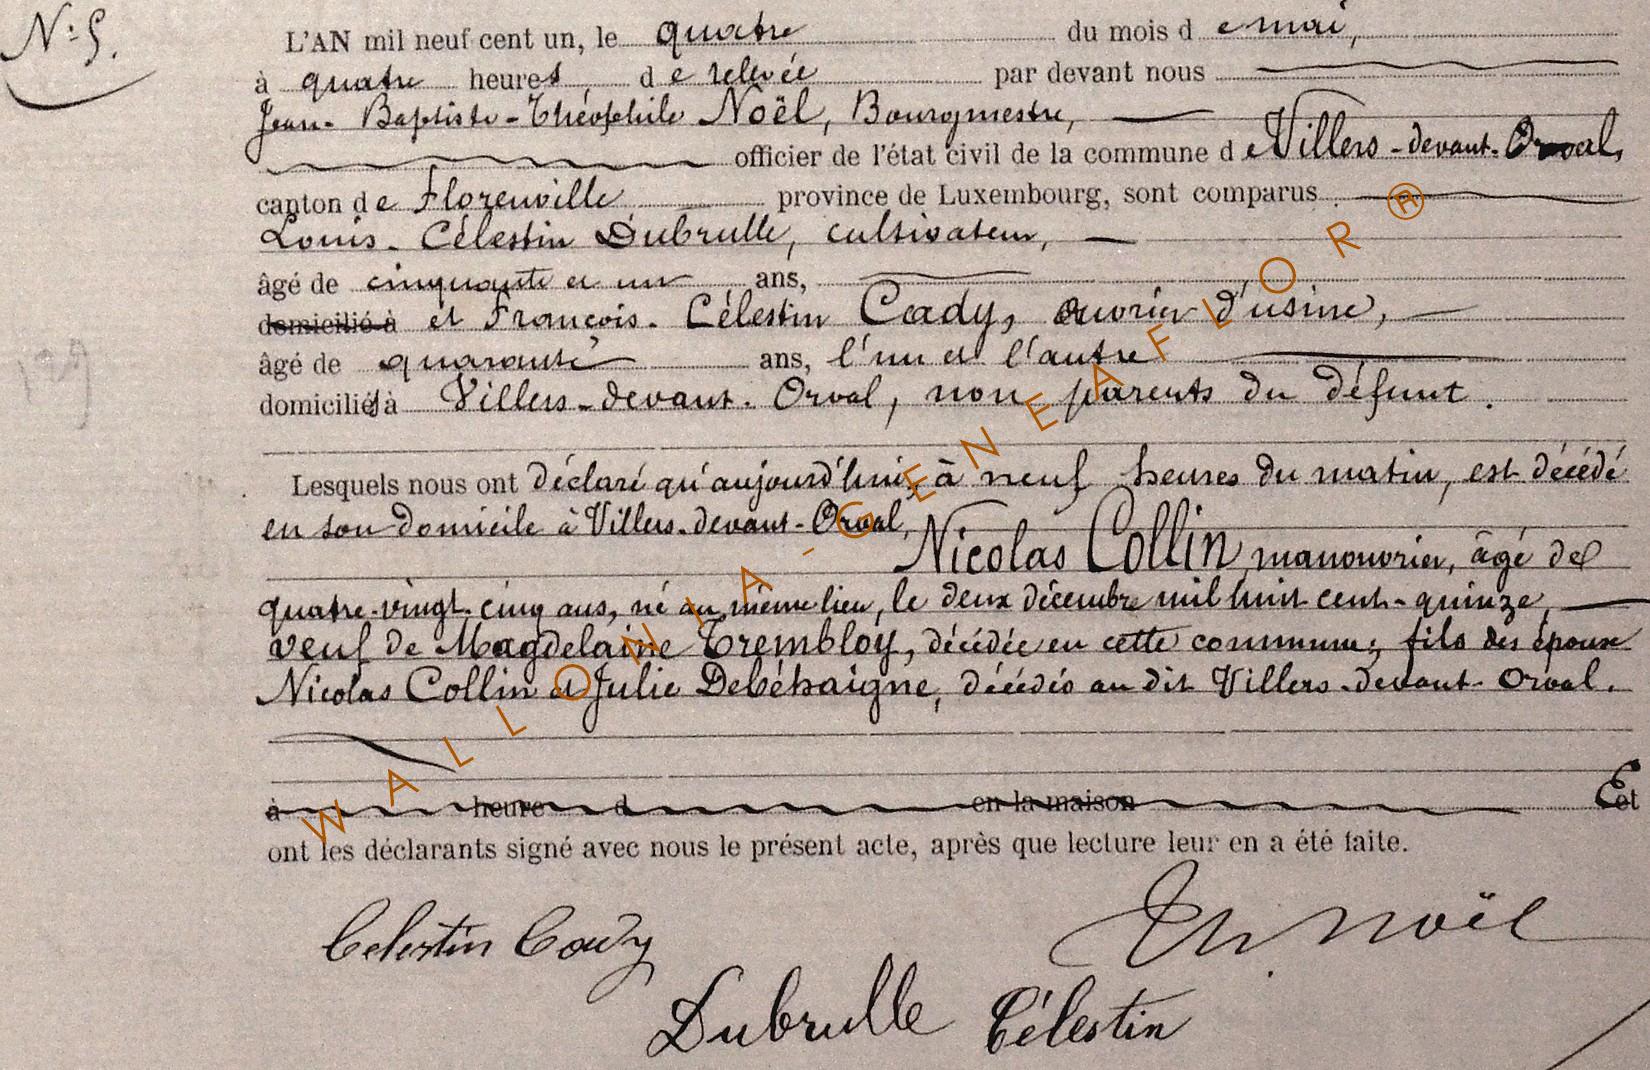 N° 5.
L'AN mil neuf cent un, le quatre du mois de mai,
à quatre heures de relevée par devant nous
Jean-Baptiste-Théophile Noël, Bourgmestre,
officier de l'état civil de la commune de Villers-devant-Orval,
canton de Florenville province de Luxembourg, sont comparus
Louis-Célestin Dubrulle, cultivateur,
âgé de cinquante et un ans,
domicilié à et François-Célestin Cady, ouvrier d'usine,
âgé de quarante ans, l'un et l'autre
domiciliés à Villers-devant-Orval, non parents du défunt.
Lesquels nous ont déclaré qu'aujourd'hui, à neuf heures du matin, est décédé
en son domicile à Villers-devant-Orval,
Nicolas Collin, manouvrier, âgé de
quatre-vingt-cinq ans, né au même lieu, le deux décembre mil huit cent-quinze,
veuf de Magdelaine Trembloy, décédée en cette commune; fils des époux
Nicolas Collin et Julie Debéhaigne, décédés au dit Villers-devant-Orval.
à heure d en la maison Et
ont les déclarants signé avec nous le présent acte, après que lecture leur en a été faite.
Celestin Cady
Th Noël
Dubrulle Célestin
WALLONIA-GENEAFLOR®